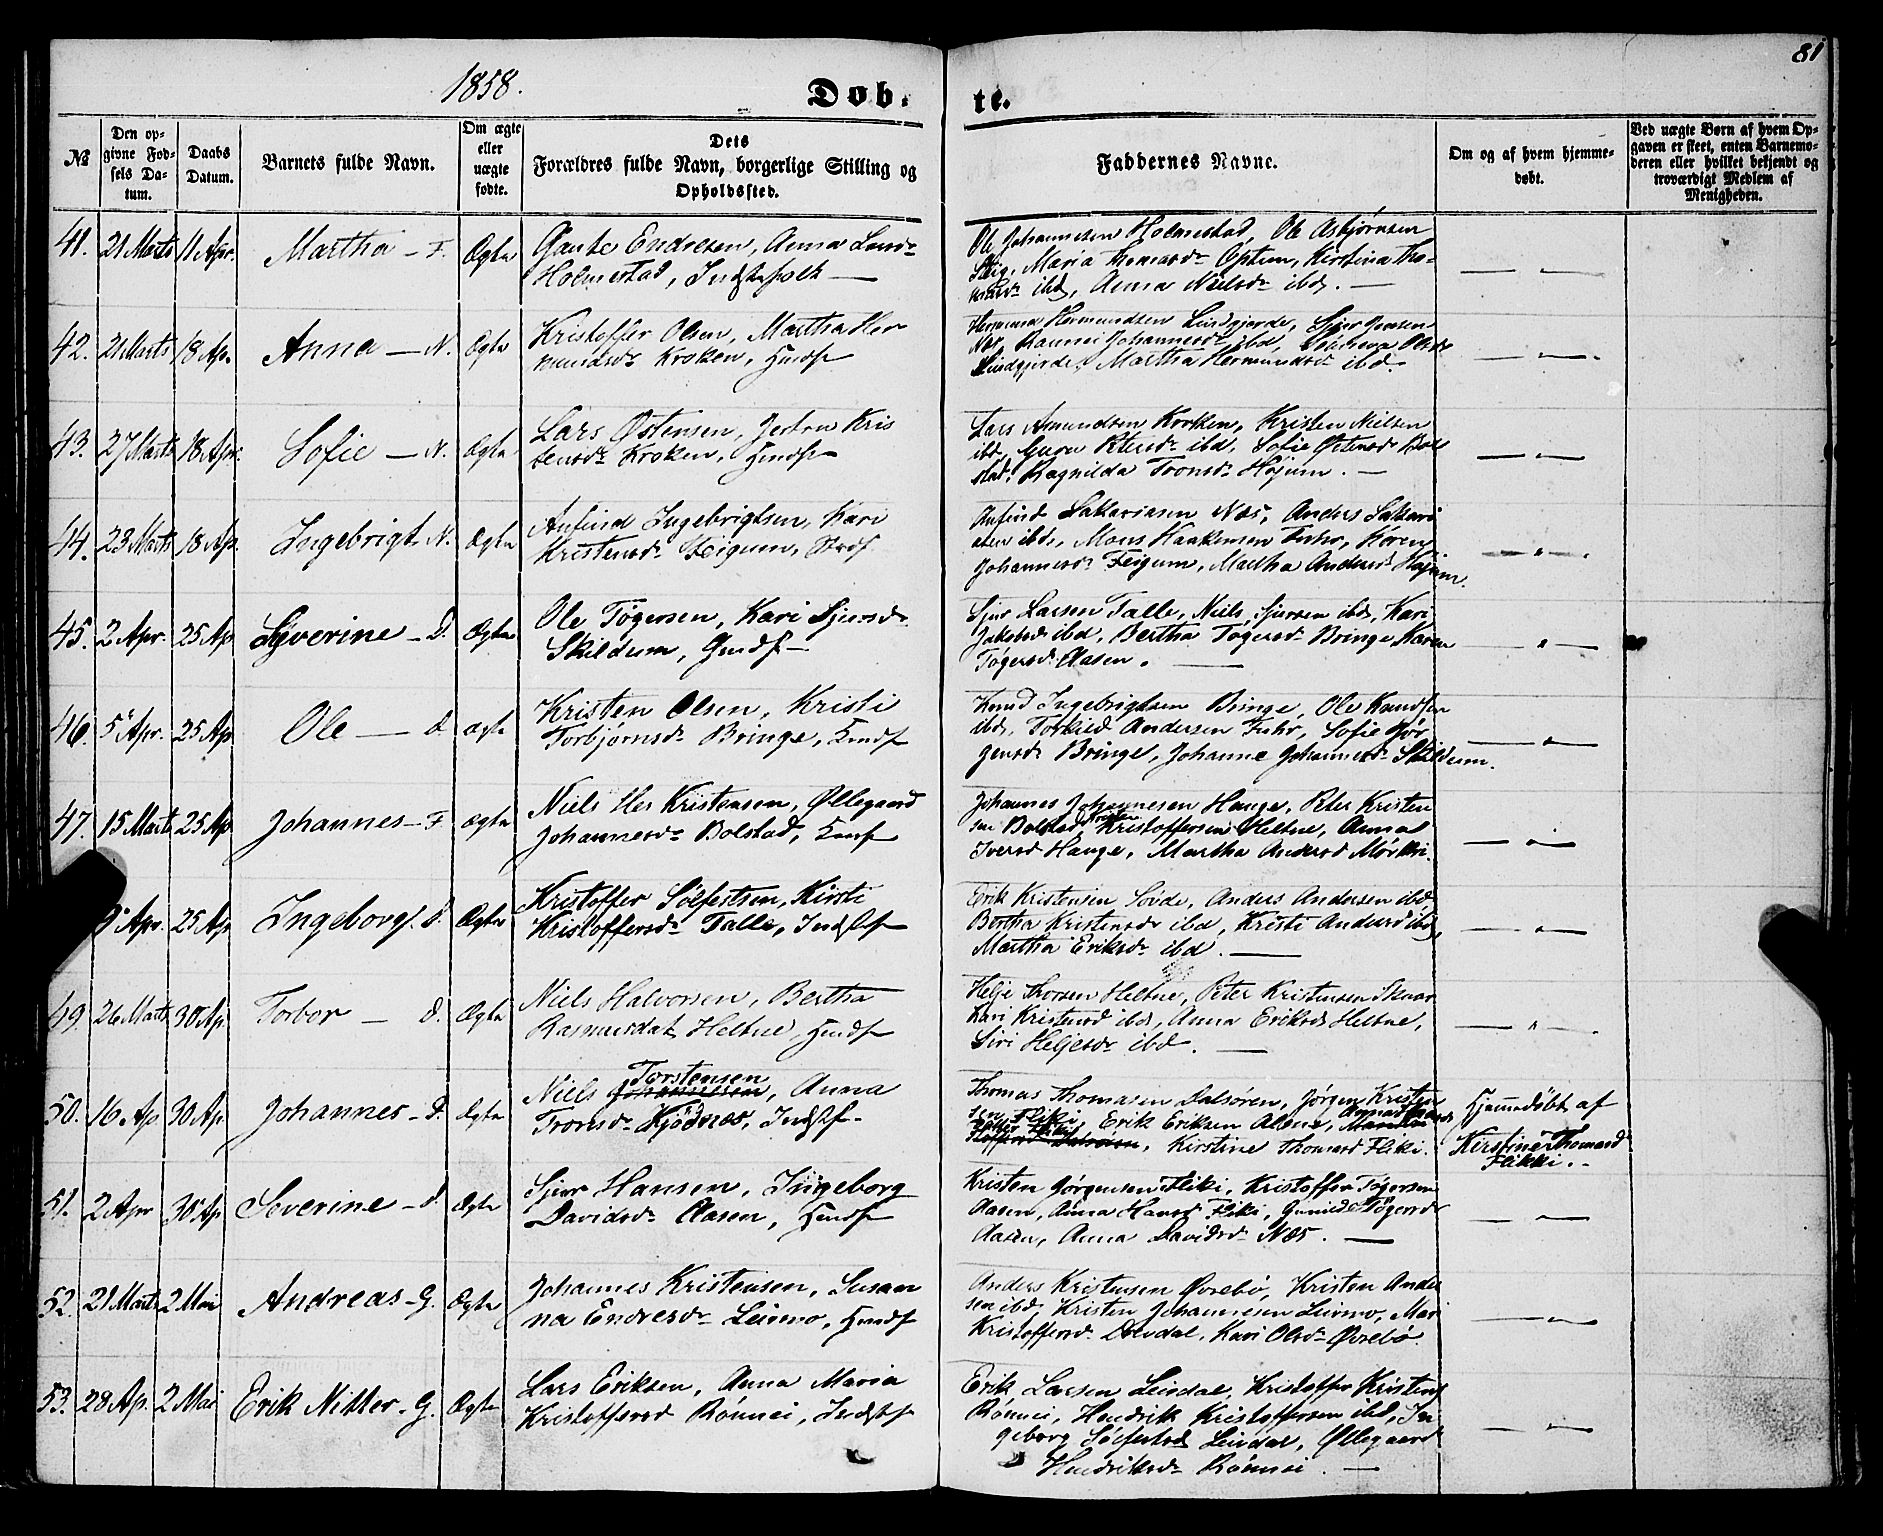 1858.
81
Døb-
te.
№
Den op-
givne Fød-
sels Da-
tum.
Daabs
Datum.
Barnets fulde Navn.
Om ægte
eller
uægte
fødte.
Dets
Forældres fulde Navn, borgerlige Stilling og
Opholdssted.
Faddernes Navne.
Om og af hvem hjemme-
døbt.
Ved uægte Børn af hvem Op-
gaven er skeet, enten Barnemo-
deren eller hvilket bekjendt og
troværdigt Medlem af
Menigheden.
41. 21 Marts 11 Apr. Martha - F. Ægte
Gaute Endresen, Anna Larsd
Holmestad, Indstefolk
Ole Johannesen Holmestad, Ole Asbjørnsen
Maria Thomasd Optun, Kirstina Tho-
masd ibd, Anna Nielsd ibd.
42. 21 Marts 18 Ap. Anna - N. Ægte
Kristoffer Olsen, Martha Her
mundsd Kroken, Hmdf
Hermundsen Lindgjerde, Sjur Jensen
Næs, Rannei Johannesd ibd, Olsd
Lindgjerde, Martha Hermundsd ibd.
43. 27 Marts 18 Apr. Sofie - N. Ægte
Lars Østensen, Kris
tensd Kroken, Hmdf
Lars Amundsen Kroken, Kristen Nielsen
ibd, Guru Petersd ibd, Sofie Østensd Bol
stad, Ragnilda Tronsd Højum.
44. 23 Marts 18 Ap. Ingebrigt N. Ægte
Anfind Ingebrigtsen, Kari
Kristensd Feigum, Strdf
Anfind Sakariasen Næs, Anders Sakari
asen ibd, Mons Haakensen Fuhr, Søren
Johannesd Feigum, Martha Andersd Højum.
45. 2 Apr. 25 Ap Syverine - D. Ægte
Ole Tøgersen, Kari Sjursd
Skildum, Gmdf
Sjur Larsen Talle, Niels Sjursen ibd, Kari
Jakobsd ibd, Bertha Tøgersd Bringe, Karen
Tøgersd Aasen.
46. 5 Apr. 25 Ap Ole - D. Ægte
Kristen Olsen, Kristi
Torbjørnsd Bringe, Hmdf
Knud Ingebrigtsen Bringe, Ole Knudsen
ibd, Torkild Andersen Fuhr, Sofie Jør
gensd Bringe, Johanne Johannesd Skildum.
47. 15 Marts 25 Ap Johannes - F Ægte
Niels Her Kristensen, Øllegaard
Johannesd Bolstad, Hmdf
Johannes Johannesen Hauge, Peter Kristen
sen Bolstad, Kristen Kristoffersen Heltne, Anna
Iversd Hauge, Martha Andersd Mørkri.
9 Apr. 25 Ap Ingeborg D. Ægte
Kristoffer Sølfestsen, Kirsti
Kristoffersd Talle, Indstf
Erik Kristensen Sørde, Anders Andersen ibd,
Bertha Kristensd ibd, Kristi Andersd ibd,
Martha Eriksd ibd.
49. 26 Marts 30 Ap Torbor - D. Ægte
Niels Halvorsen, Bertha
Rasmusdat Heltne, Hmdf
Helje Thorsen Heltne, Peter Kristensen Skaar
Kari Kristensd ibd, Anna Eriksd Heltne,
Siri Heljesd ibd.
50. 16 Ap 30 Ap Johannes - D. Ægte
Niels Johannesen Torstensen, Anna
Tronsd Kjødnæs, Indstf
Thomas Thomasen Dalsøren, Jørgen Kristen
sen Fliki, Erik Eriksen Alsme,
Dalsøren, Kirstine Thomasd Fliki.
Hjemmedøbt af
Kirstine Thomasd
Flikki.
51. 2 Apr 30 Ap Severine - D. Ægte
Sjur Hansen, Ingeborg
Davidsd Aasen, Hmdf
Kristen Jørgensen Fliki, Kristoffer Tøgersen
Aasen, Anna Hansd Fliki, Gunild Tøgersd
Aasen, Anna Davidsd Næs.
52. 21 Marts 2 Mai Andreas - G. Ægte
Johannes Kristensen, Susan
na Endresd Leirmo, Hmdf
Anders Kristensen Øvrebø, Kristen Ander
sen ibd, Kristen Johannesen Leirmo, Mari
Kristoffersd Drevdal, Kari Olsd Øvrebø
53. 28 Ap. 2 Mai Erik Nitter - G. Ægte
Lars Eriksen, Anna Maria
Kristoffersd Rønnei, Indstf
Erik Larsen Leirdal, Kristoffer Kristens
Rønnei, Hendrik Kristoffersen ibd, In
geborg Sølfestsd Leirdal, Øllegaard
Hendriksd Rønnei.